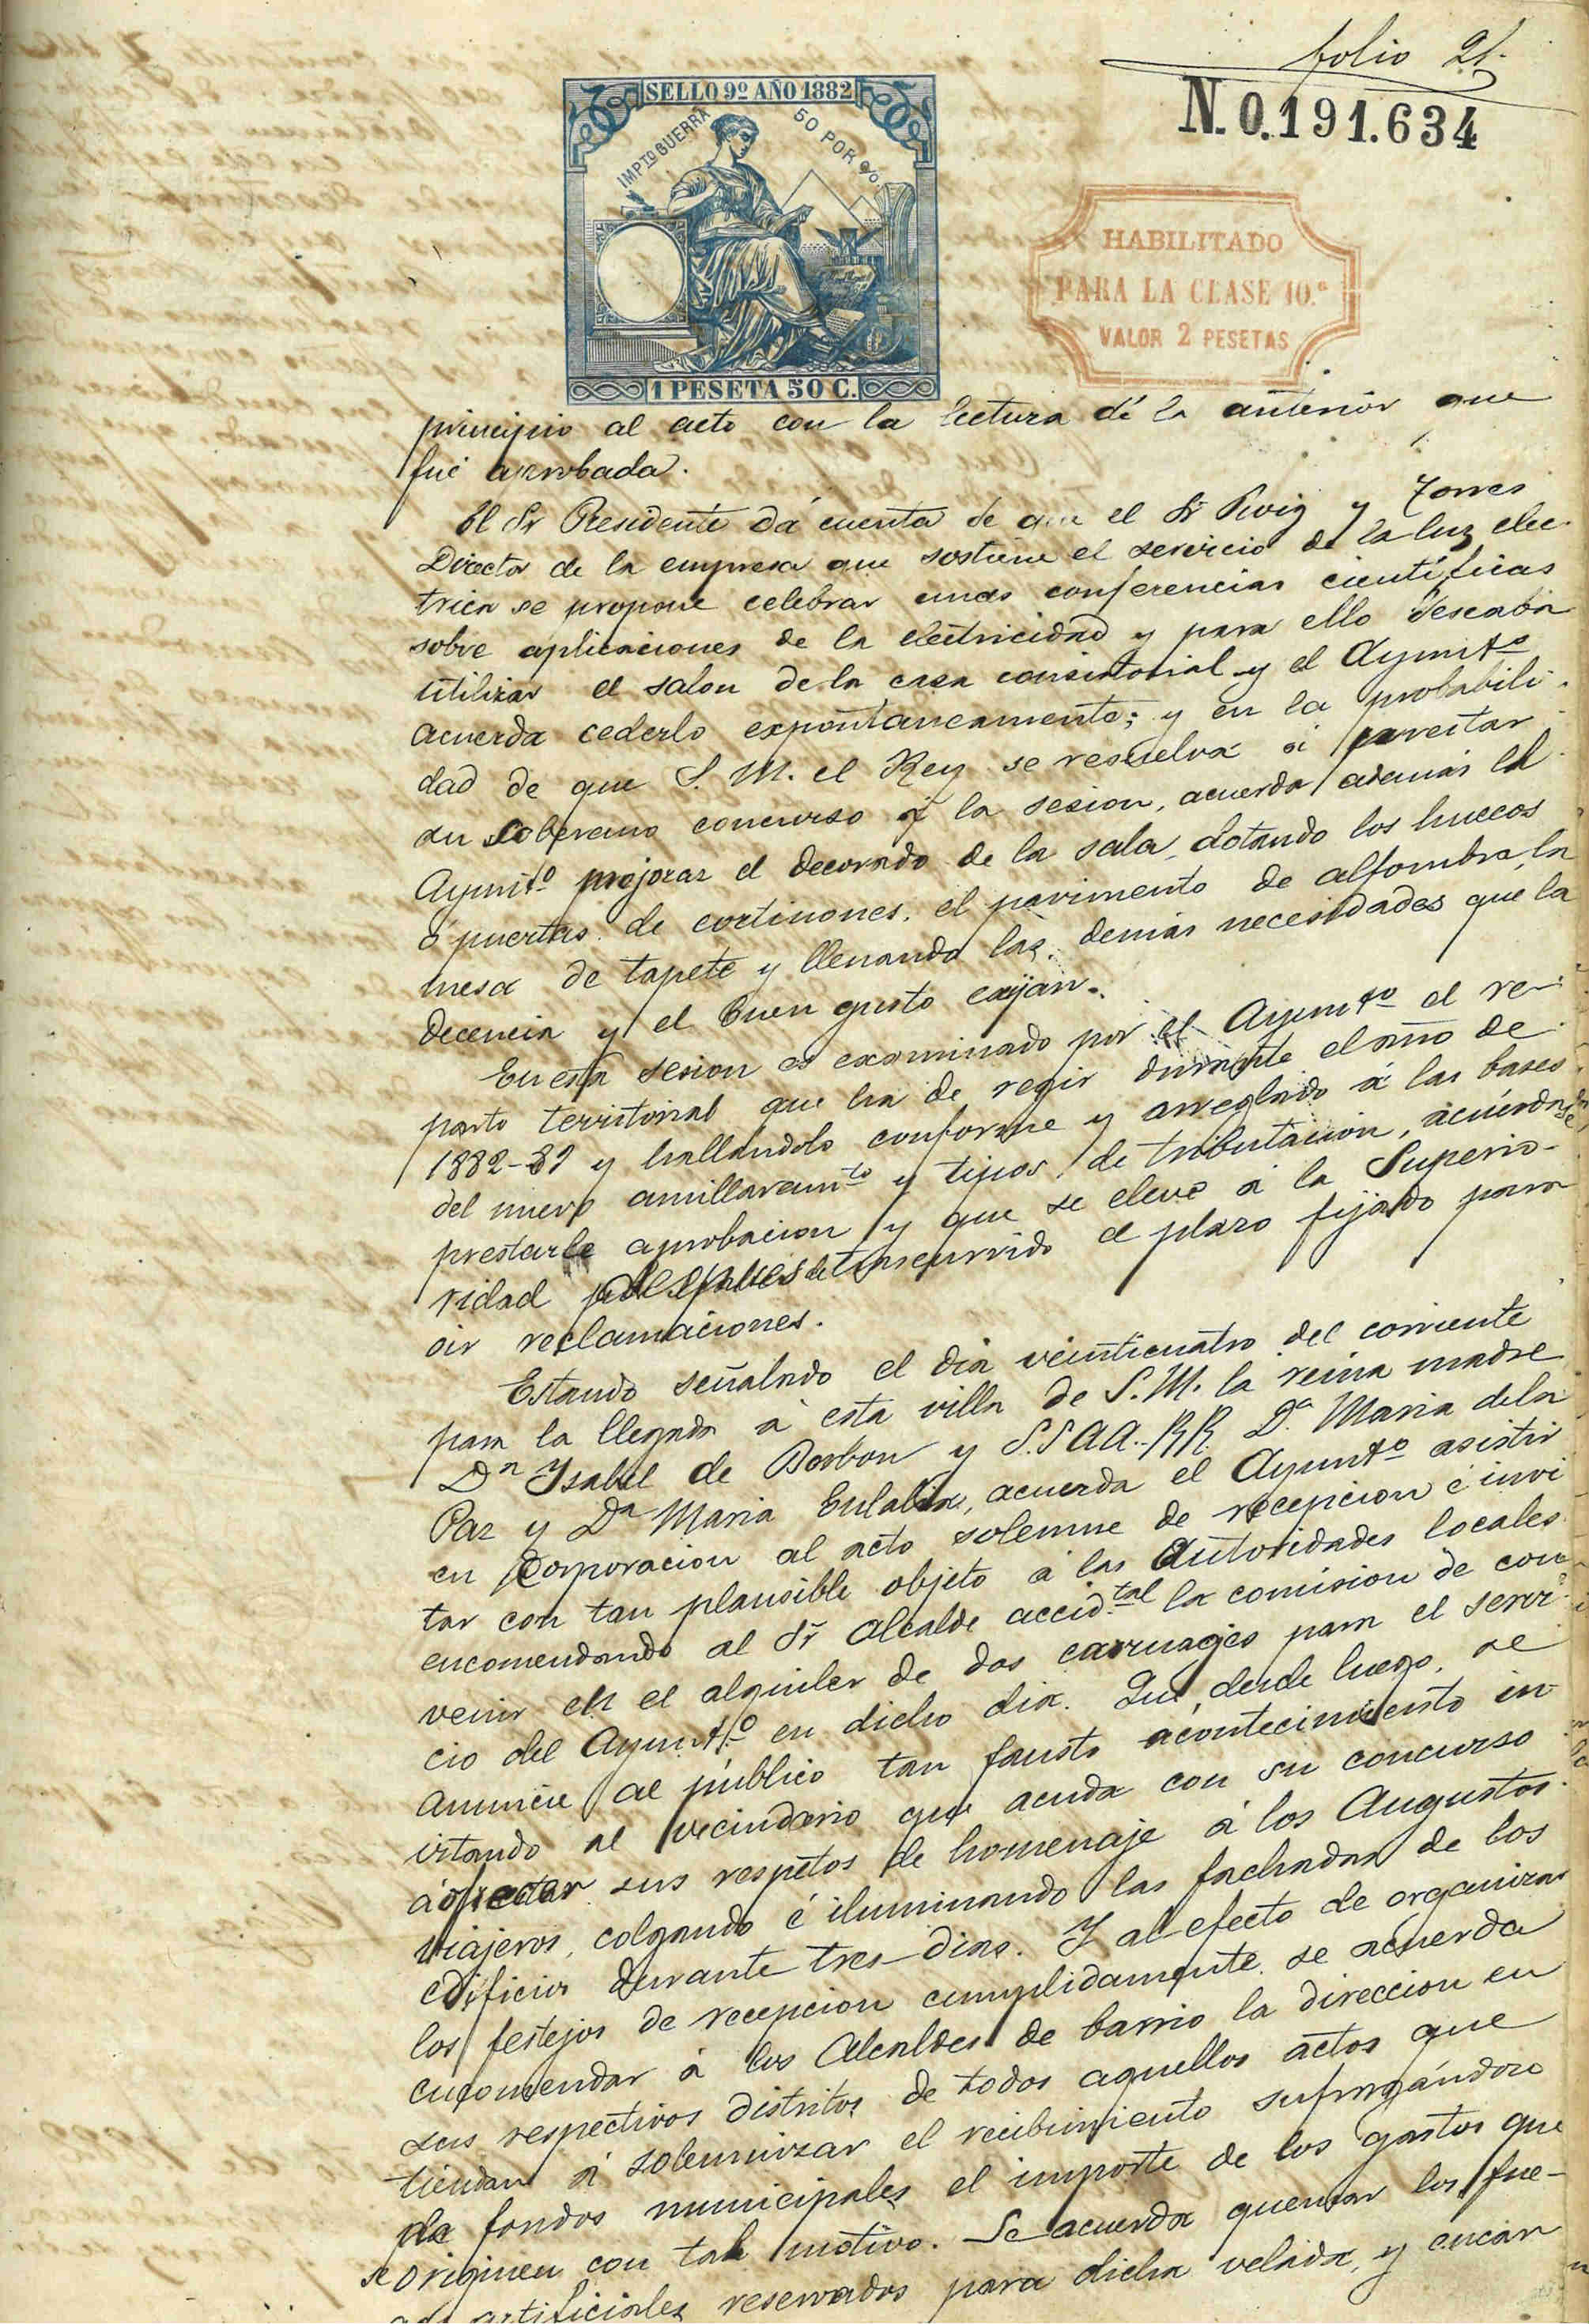 folio 21.
N. 0.191.634
SELLO 9º AÑO 1882
IMPTO GUERRA 50 POR %
HABILITADO
PARA LA CLASE 10.ª
VALOR 2 PESETAS
1 PESETA 50 C.
principio al acto con la lectura dé la anterior que
fué aprobada.
El Sr Presidente dá cuenta de que el Sr Puig y Torres
Director de la empresa que sostiene el servicio de la luz elec-
trica se propone celebrar unas conferencias científicas
sobre aplicaciones de la electricidad y para ello deseaba
utilizar el salon de la casa consistorial y el Ayuntº
acuerda cederlo expontaneamente; y en la probabili-
dad de que S. M. el Rey se resuelva á prestar
su soberano concurso á la sesion, acuerda además el
Ayuntº mejorar el decorado de la sala, dotando los huecos
ó puertas de cortinones, el pavimento de alfombra, la
mesa de tapete y llenando las demás necesidades que la
decencia y el buen gusto exijan.
En esta sesion es examinado por el Ayuntº el re-
parto territorial que ha de regir durante el año de
1882-83 y hallandolo conforme y arreglado á las bases
del nuevo amillaramtº y tipos de tributacion, acuérdase
prestarle aprobacion y que se eleve á la Superio-
ridad despues de transcurrido el plazo fijado para
oir reclamaciones.
Estando señalado el dia veinticuatro del corriente
para la llegada á esta villa de S. M. la reina madre
Dª Ysabel de Borbon y S.S A A. R R. Dª Maria de la
Paz y Dª Maria Eulalia, acuerda el Ayuntº asistir
en Corporacion al acto solemne de recepcion é invi
tar con tan plausible objeto á las Autoridades locales
encomendando al Sr Alcalde accid.tal la comision de con-
venir en el alquiler de dos carruages para el servi-
cio del Ayuntº en dicho dia. Que, desde luego, se
anuncie al público tan fausto acontecimiento in-
vitando al vecindario que acuda con su concurso
á prestar sus respetos de homenaje á los Augustos
viajeros, colgando é iluminando las fachadas de los
edificios durante tres dias. Y al efecto de organizar
los festejos de recepcion cumplidamente, se acuerda
encomendar á los Alcaldes de barrio la direccion en
sus respectivos distritos de todos aquellos actos que
tiendan á solemnizar el recibimiento sufragándose
de fondos municipales el importe de los gastos que
se originen con tal motivo. Se acuerda quemar los fue-
gos artificiales reservados para dicha velada, y encar